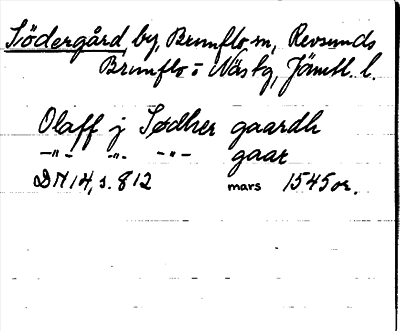 Södergård, by, Brunflo sn, Revsunds
Brunflo o Näs tg, Jämtl. l.
Olaff j Sødher gaardh
-"- -"- -"- gaar
DN 14, s. 812 mars 1545 or.